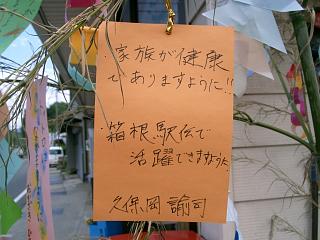 家族が健康
でありますように!!
箱根駅伝で
活躍できますように
久保岡諭司